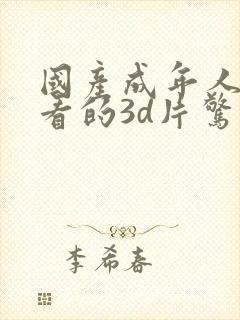 國產成年人
看的3d片驚
李希春